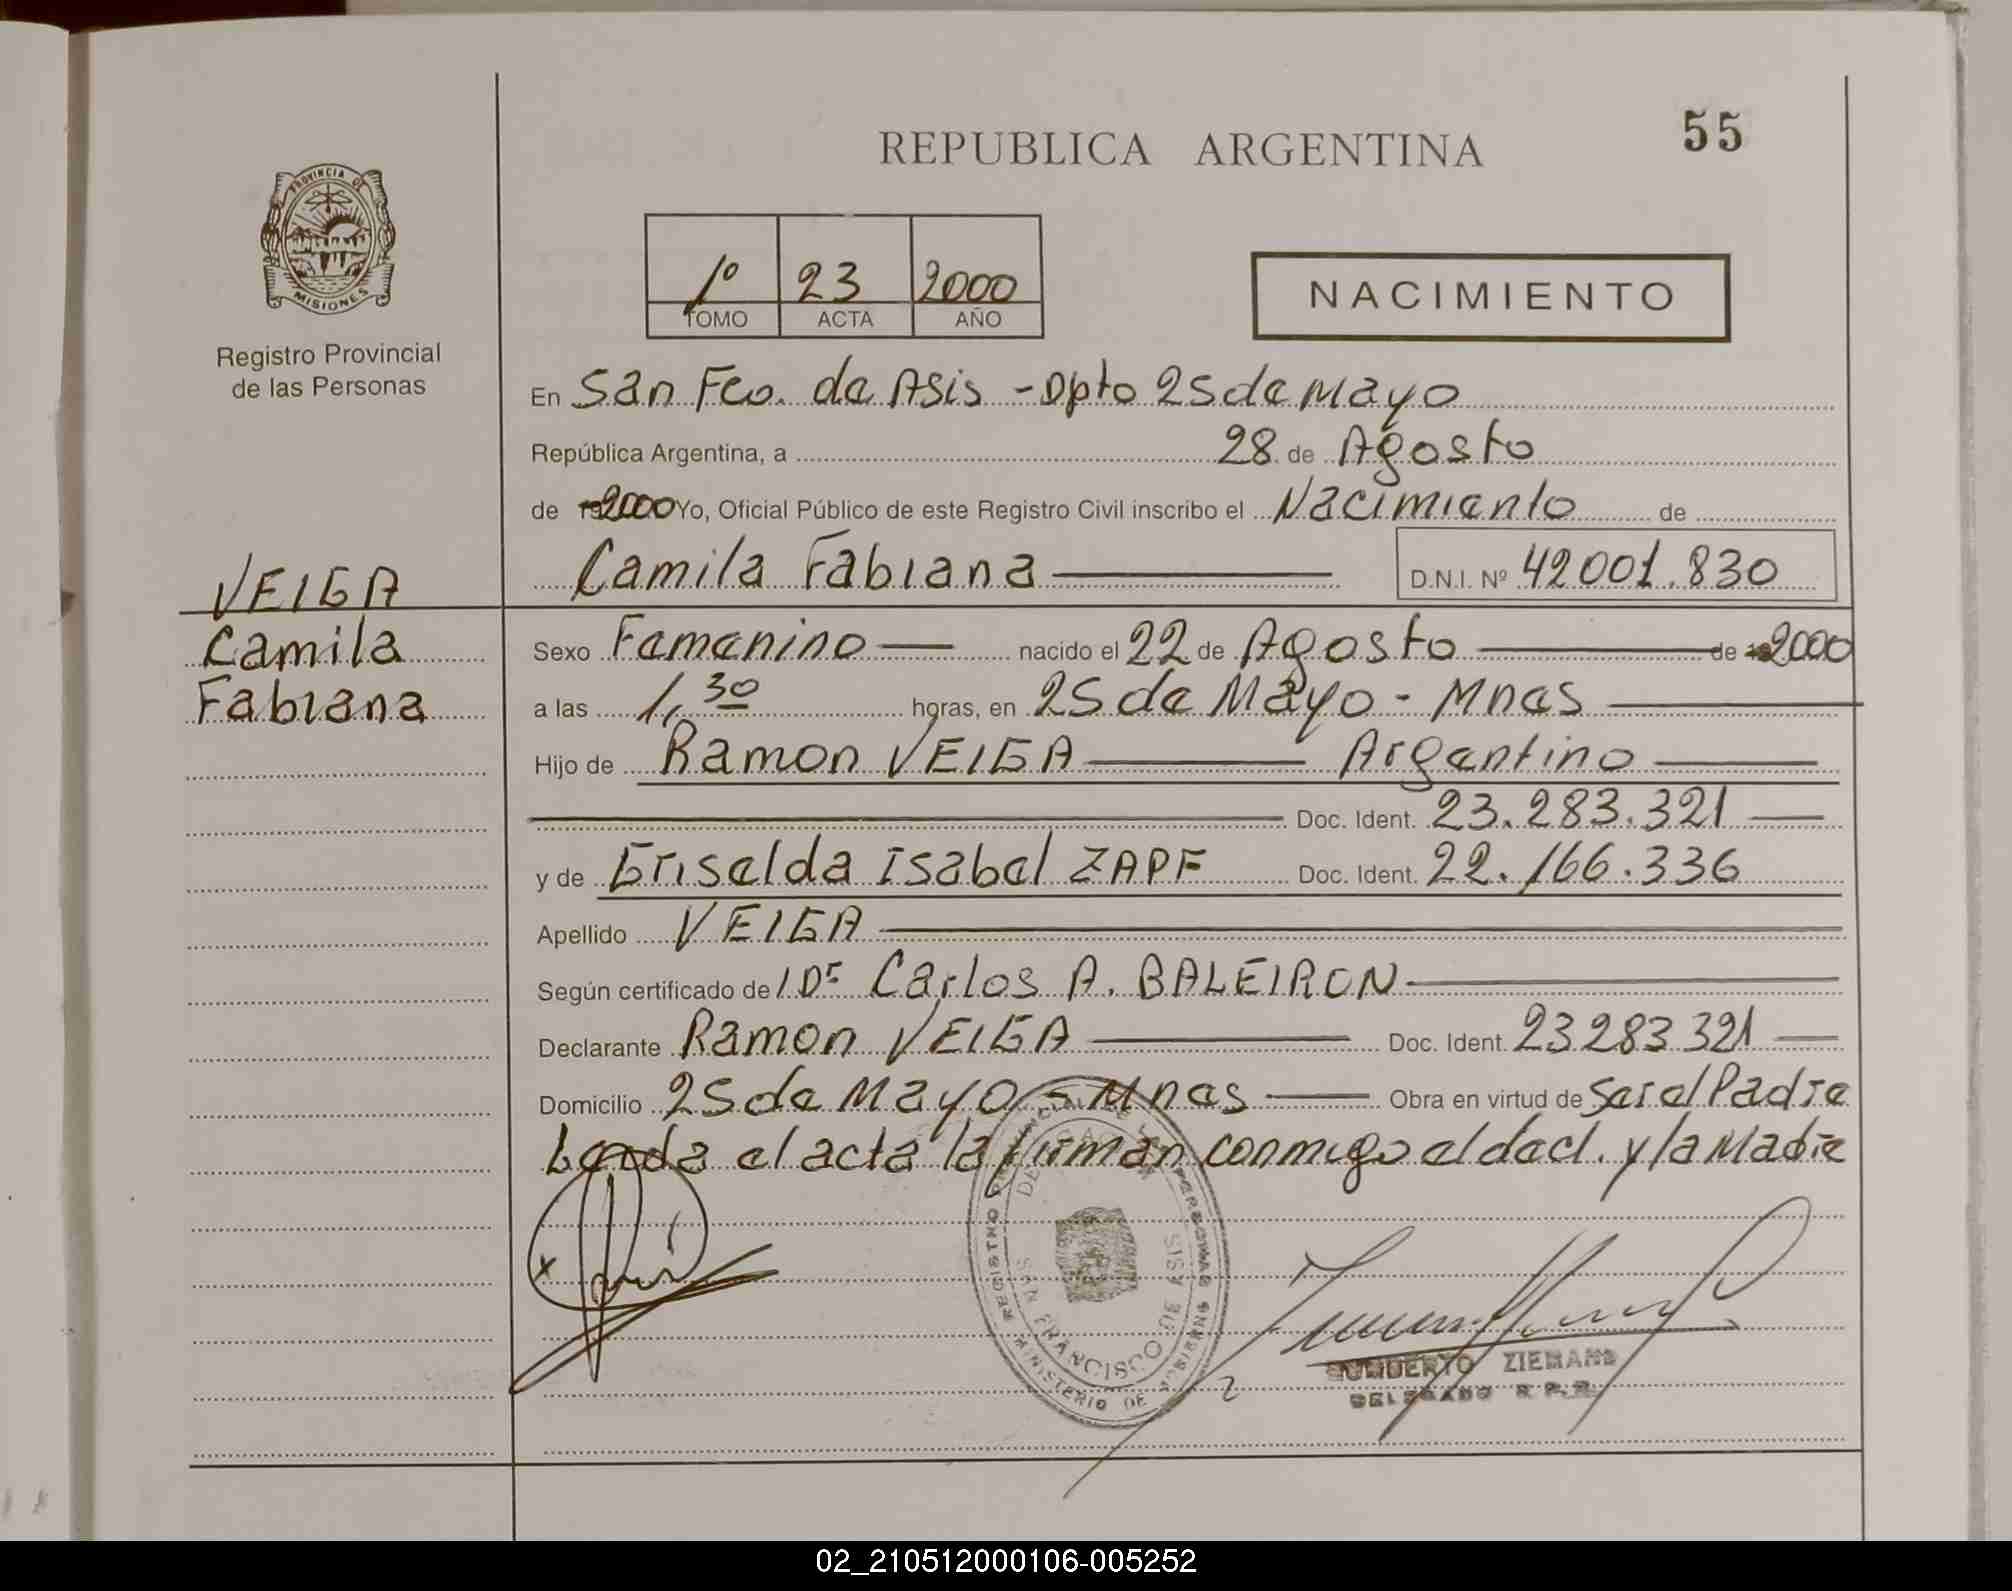 55
REPUBLICA ARGENTINA
PROVINCIA DE
MISIONES
Registro Provincial
de las Personas
1º 23 2000
TOMO ACTA AÑO
NACIMIENTO
En San Fco. de Asis - Dpto 25 de Mayo
República Argentina, a 28 de Agosto
de 2000 Yo, Oficial Público de este Registro Civil inscribo el Nacimiento de
Camila Fabiana D.N.I. Nº 42001.830
VEIGA
Camila
Fabiana
Sexo Femenino nacido el 22 de Agosto de 2000
a las 1,30 horas, en 25 de Mayo - Mnes
Hijo de Ramon VEIGA Argentino
Doc. Ident. 23.283.321
y de Griselda Isabel ZAPF Doc. Ident. 22.166.336
Apellido VEIGA
Según certificado de Dr Carlos A. BALEIRON
Declarante Ramon VEIGA Doc. Ident. 23283321
Domicilio 25 de Mayo - Mnes Obra en virtud de Ser el Padre
Leida el acta la firman conmigo el decl. y la Madre
REGISTRO PROVINCIAL DE LAS PERSONAS
SAN FRANCISCO DE ASIS
MINISTERIO DE
HUMBERTO ZIEMANN
DELEGADO R.P.P.
02_210512000106-005252